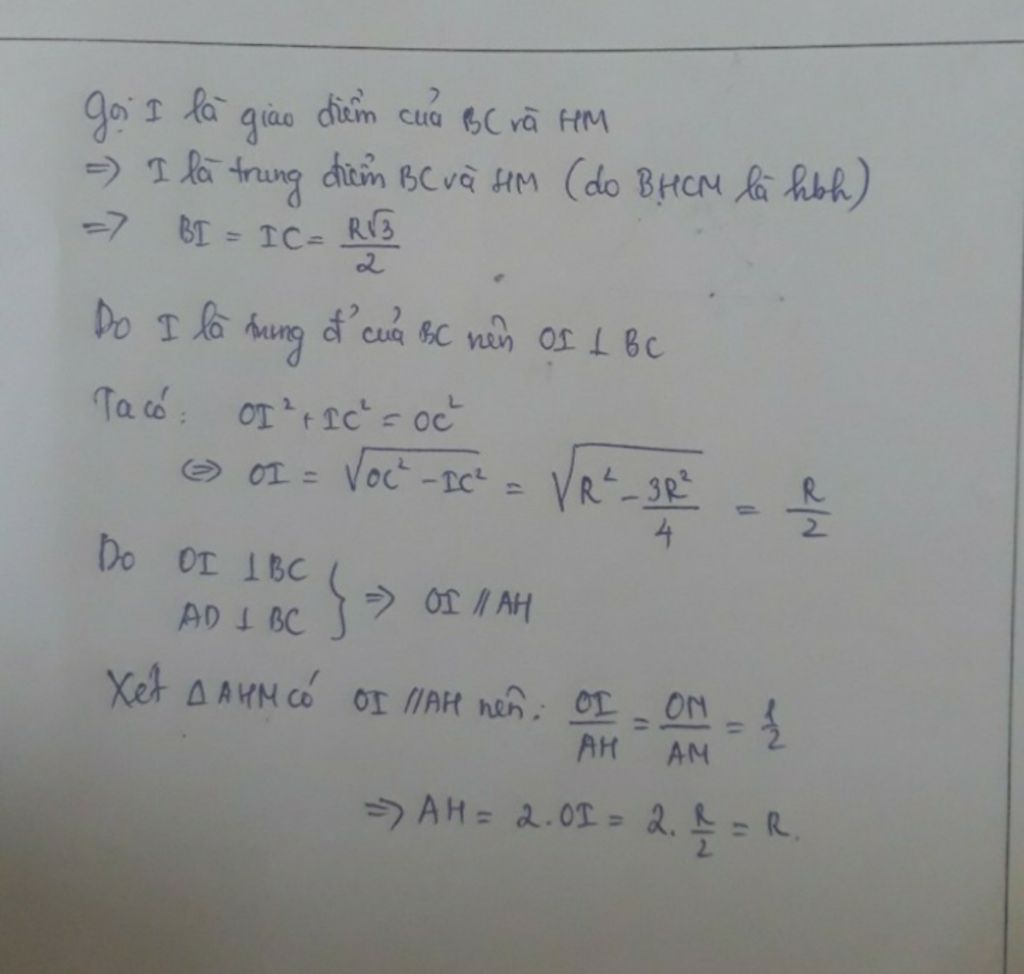 Gọi I là giao điểm của BC và HM
=> I là trung điểm BC và HM (do BHCM là hbh)
=> BI = IC = R√3/2
Do I là trung đ' của BC nên OI ⊥ BC
Ta có: OI² + IC² = OC²
<=> OI = √(OC² - IC²) = √(R² - 3R²/4) = R/2
Do OI ⊥ BC
AD ⊥ BC } => OI // AH
Xét Δ AHM có OI // AH nên: OI/AH = OM/AM = 1/2
=> AH = 2.OI = 2. R/2 = R.